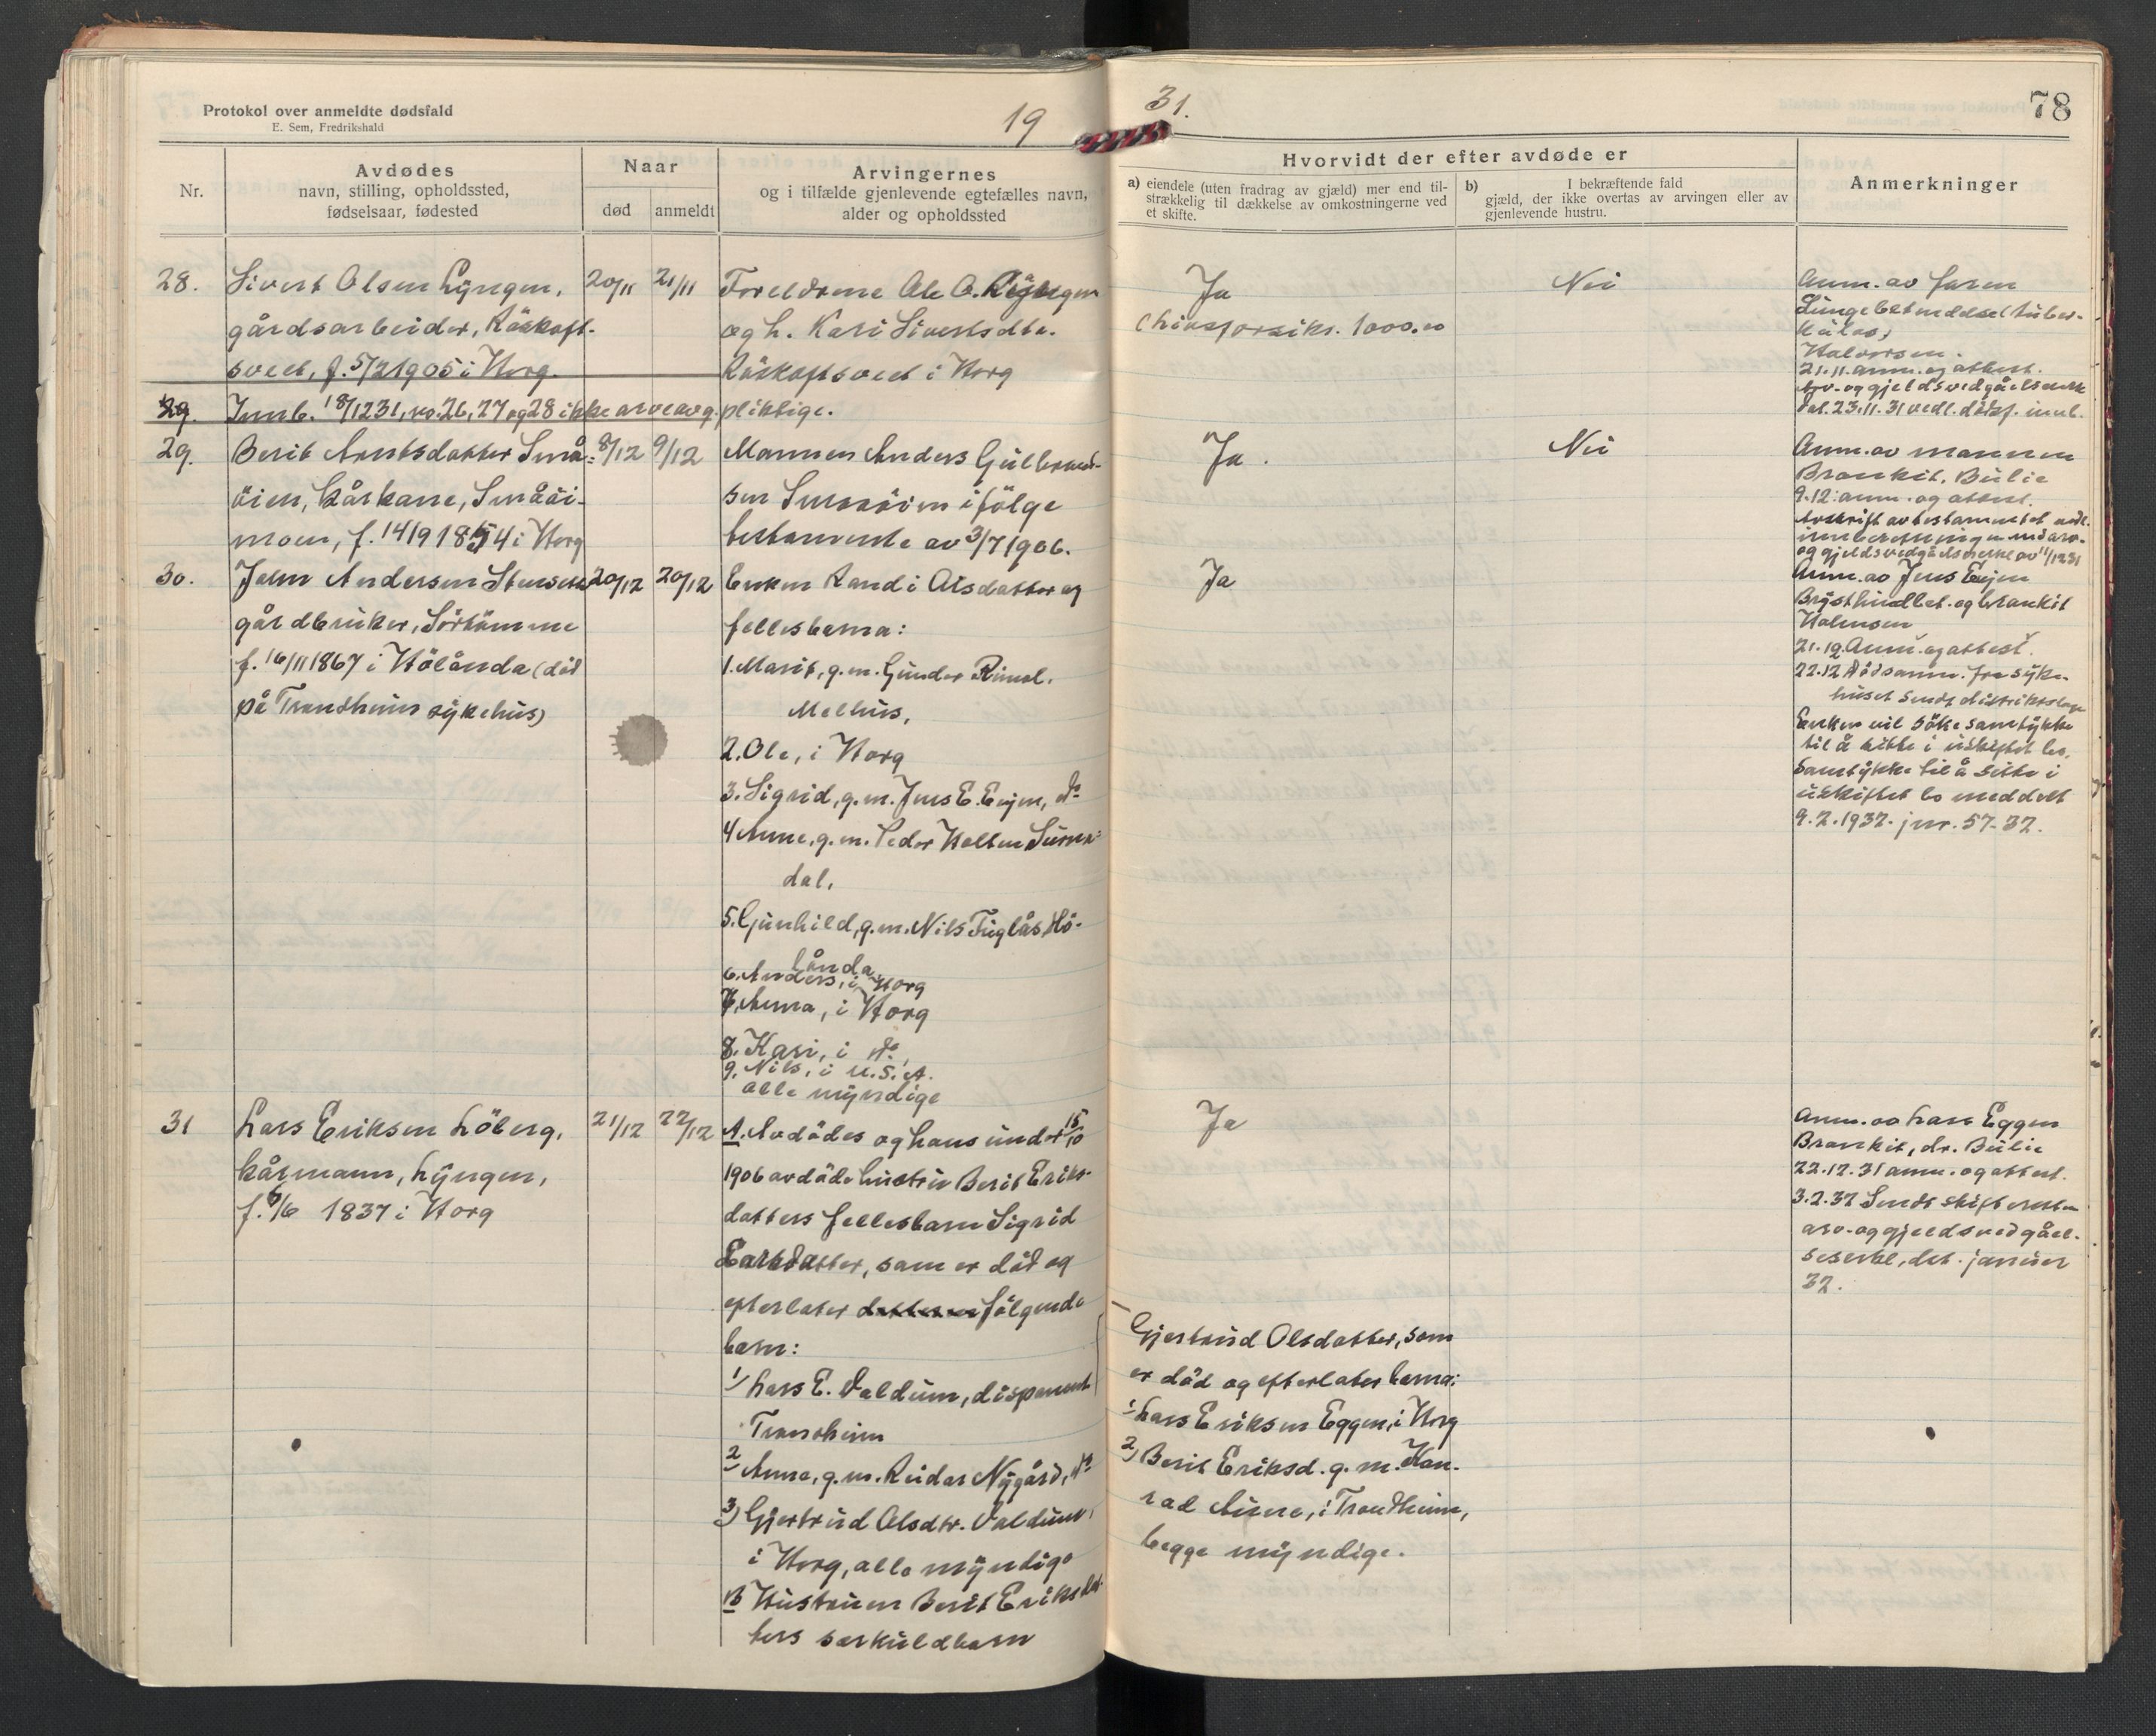 Protokol over anmeldte dødsfald
E. Sem, Fredrikshald
19
31.
78
Nr.
Avdødes
navn, stilling, opholdssted,
fødselsaar, fødested
Naar
død
anmeldt
Arvingernes
og i tilfælde gjenlevende egtefælles navn,
alder og opholdssted
Hvorvidt der efter avdøde er
a) eiendele (uten fradrag av gjæld) mer end til-
strækkelig til dækkelse av omkostningerne ved
et skifte.
b) I bekræftende fald
gjæld, der ikke overtas av arvingen eller av
gjenlevende hustru.
Anmerkninger
28.
Sivert Olsen Lyngen,
gårdsarbeider, Råskaft-
svedt, f. 5/2 1905 i Horg.
20/11
21/11
Foreldrene Ole O. Lyngen
og h. Kari Sivertsdtr.
Råskaftsvedt i Horg
Ja
(Livsforsikr. 1000.00
Nei
Anm. av faren
Lungebetendelse (tuber-
kulos)
Halvorsen.
21.11. anm. og attest.
Arv- og gjeldsvedgåelseserk
dat. 23.11.31 vedl. dødsf. innb.
29.
Innb. 18/12 31, no. 26, 27 og 28 ikke arveavg.pliktige.
29.
Berit Arntsdatter Små-
øien, kårkone, Småøi-
moen, f. 14/9 1854 i Horg
8/12
9/12
Mannen Anders Gulbrand-
sen Småøien ifølge
testamente av 3/7 1906.
Ja.
Nei
Anm. av mannen
Bronkit. Bulie
9.12: anm. og attest.
Avskrift av testamentet vedl.
innberetningen med arv-
og gjeldsvedgåelseserkl av 11/12 31
30.
John Andersen Stensen
gårdbruker, Sørtømme
f. 16/11 1867 i Hølånda (død
på Trondheim sykehus)
20/12
20/12
Enken Randi Olsdatter og
fellesbarna:
1. Marit, g.m. Gunder Rimol.
Melhus,
2. Ole, i Horg
3. Sigrid, g.m. Jens E. Evjen, do
4 Anne, g.m. Peder Holten Surna-
dal,
5. Gunhild, g.m. Nils Fuglås, Hø-
lånda
6. Anders, i Horg
7. Anna, i Horg
8. Kari, i do,
9. Nils, i U.S.A.
alle myndige
Ja
Anm. av Jens Evjen
Brysthinnebet. og bronkit
Halvorsen
21.12 Anm. og attest.
22.12 Dødsanm. fra syke-
huset sendt distriktslege
Enken vil søke samtykke
til å sitte i uskiftet bo.
Samtykke til å sitte i
uskiftet bo meddelt
9.2.1932. jnr. 57-32.
31
Lars Eriksen Løberg,
kårmann, Lyngen,
f. 6/6 1837 i Horg
21/12
22/12
A. Avdødes og hans under 15/10
1906 avdøde hustru Berit Eriks-
datters fellesbarn Sigrid
Larsdatter, som er død og
efterlater datteren følgende
barn:
1) Lars E. Valdum, disponent
Trondheim
2) Anna, g.m. Reidar Nygård, do
3) Gjertrud Olsdtr. Valdum,
i Horg, alle myndige
B Hustruen Berit Eriksdat-
ters særkuldbarn
Ja
Gjertrud Olsdatter, som
er død og efterlater barna:
1) Lars Eriksen Eggen, i Horg
2) Berit Eriksd. g.m. Kon-
rad Aune, i Trondheim,
begge myndige.
Anm. av Lars Eggen
Bronkit, dr. Bulie
22.12.31 anm. og attest.
3.2.32 Sendt skifteretten
arv- og gjeldsvedgåel-
seserkl, dat. januar
32.